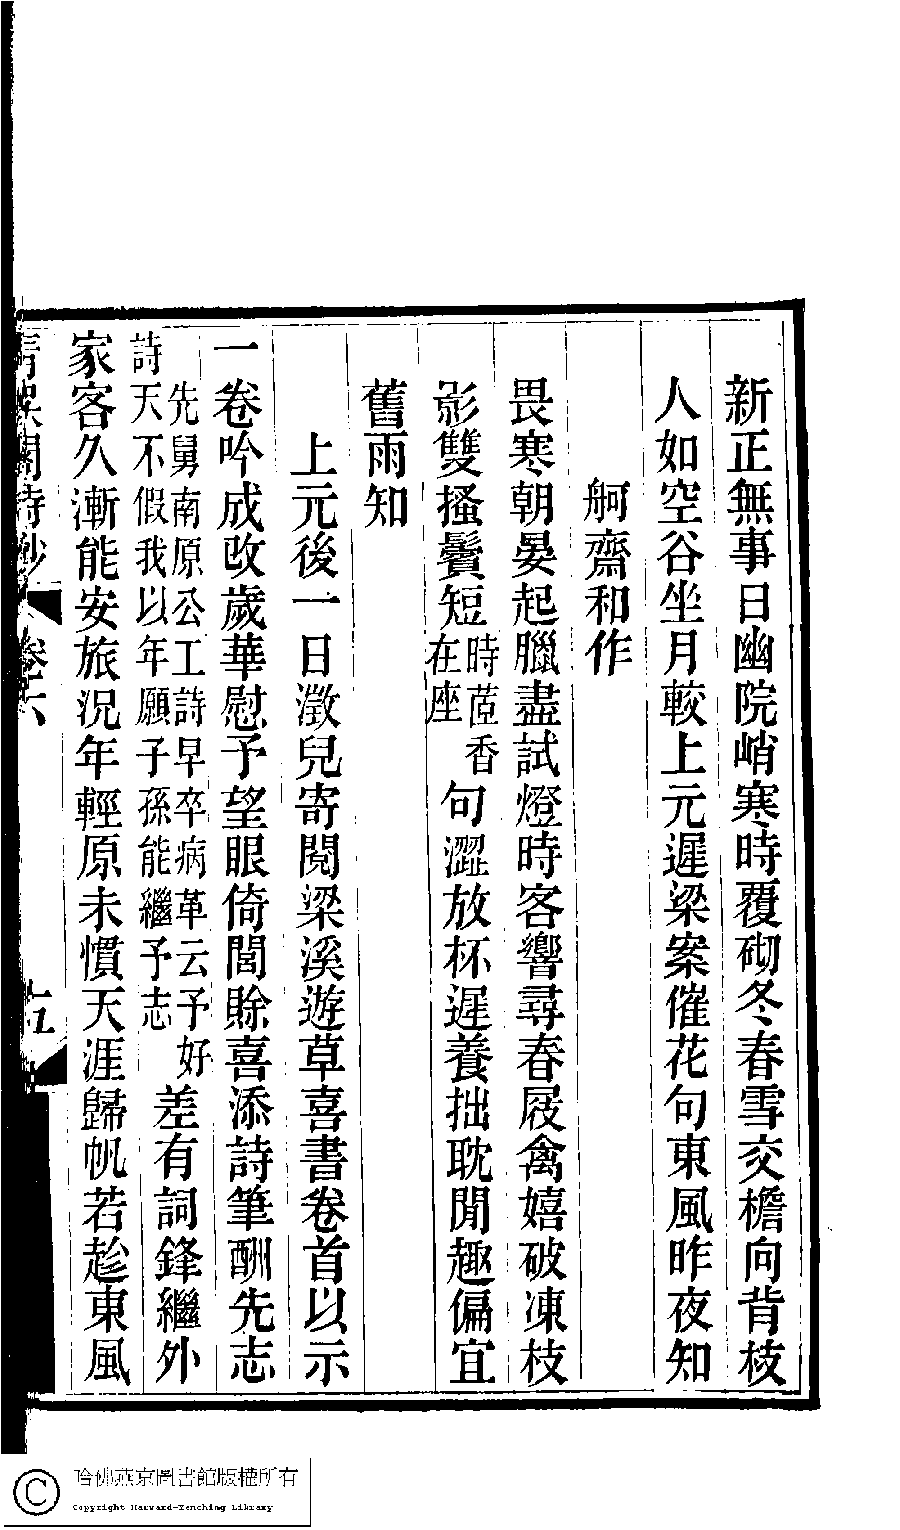 新正無事日幽院峭寒時覆砌冬春雪交檐向背枝
人如空谷坐月較上元遲梁案催花句東風昨夜知
舸齋和作
畏寒朝晏起臘盡試燈時客響尋春屐禽嬉破凍枝
影雙搔鬢短時茝香在座句澀放杯遲養拙耽閒趣偏宜
舊雨知
上元後一日澂兒寄閱梁溪遊草喜書卷首以示
一卷吟成改歲華慰予望眼倚閭賒喜添詩筆酬先志
先舅南原公工詩早卒病革云予好詩天不假我以年願子孫能繼予志差有詞鋒繼外
家客久漸能安旅況年輕原未慣天涯歸帆若趁東風
清娛閣詩鈔 卷六 五
哈佛燕京圖書館版權所有
Copyright Harvard-Yenching Library